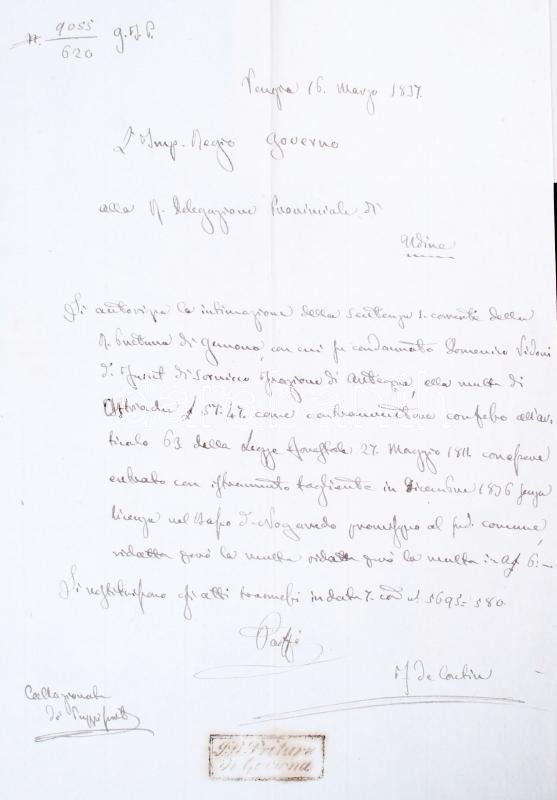 N. 9055
620 G.N.P.
Venezia 16. Marzo 1837.
L'Imp. Regio Governo
alla R. Delegazione Provinciale di
Udine
Si autorizza la intimazione della sentenza 1. corrente della
R. Pretura di Gemona, con cui fu condannato Domenico Vidoni
di Sornicco frazione di Artegna, alla multa di
Austriache £ 57:47. come contravventore confesso all'ar-
ticolo 63 della Legge forestale 27. Maggio 1811. con essere
entrato con istrumento tagliente in Dicembre 1836 senza
licenza nel Bosco di Nogaredo promesso al sud. comune,
ridotta però la multa ridotta però la multa in a£ 6:-
Si restituiscono gli atti trasmessi in data 7. corr. N. 5695-580.
Collazionata
I.R. Pretura
di Gemona